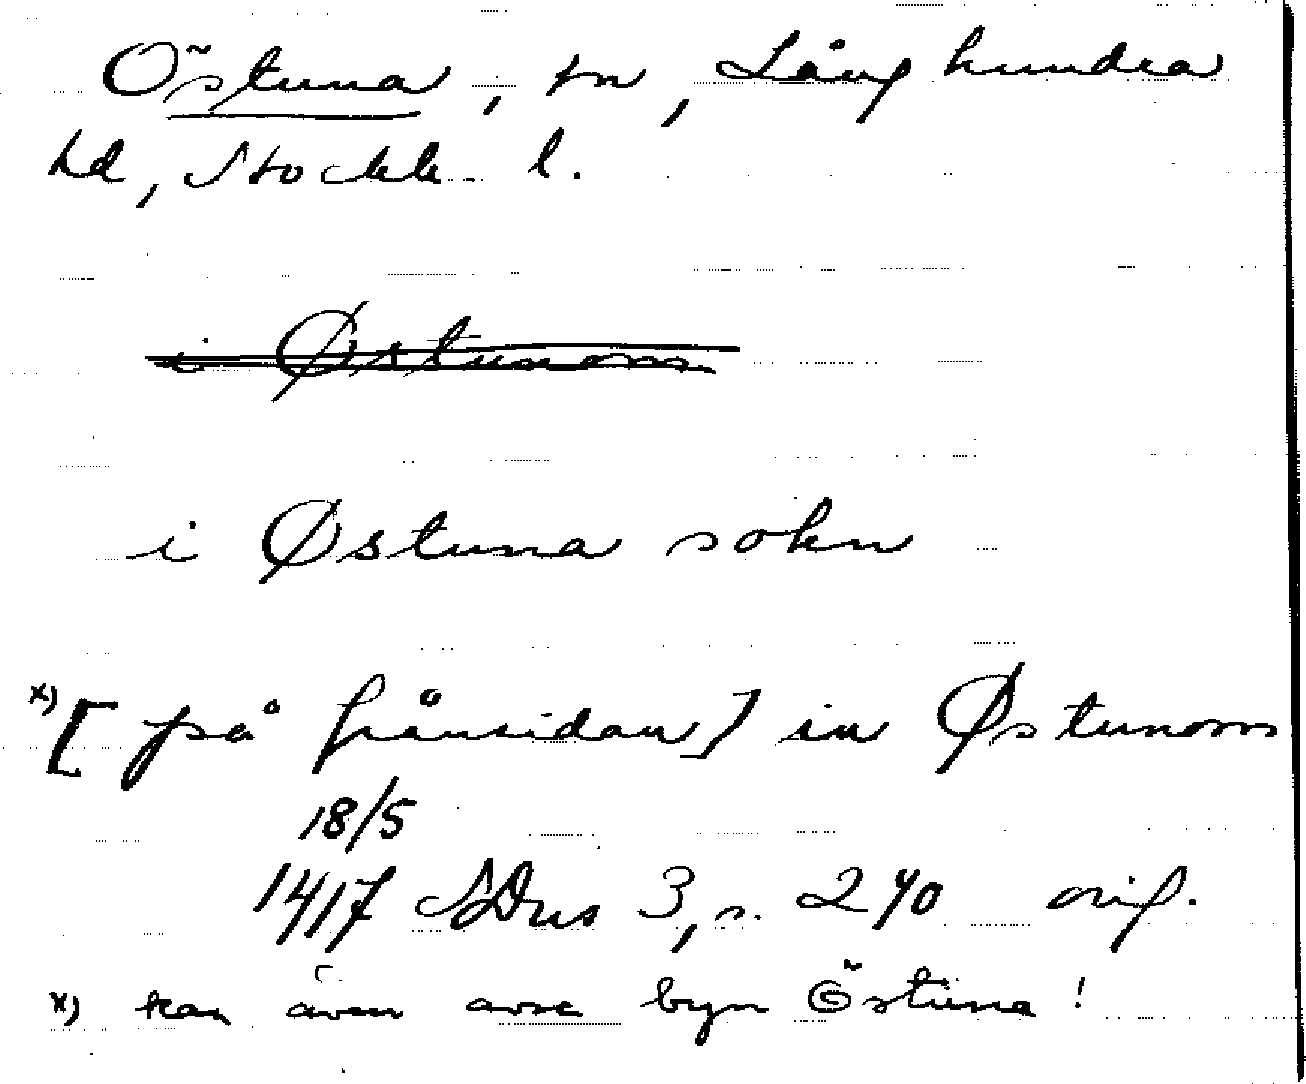 Östuna, sn, Långhundra
hd, Stockh. l.
i Østunom
i Østuna sokn
x) [på frånsidan] in Østunom
18/5
1417 SDns 3, s. 240 orig.
x) kan även avse byn Östuna!